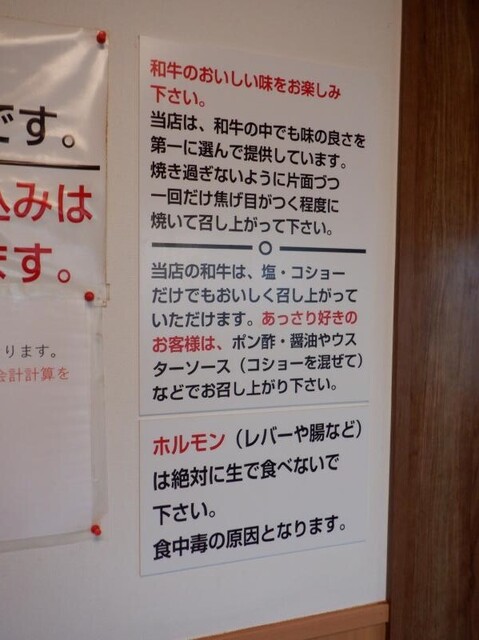 です。
込みは
ます。
ります。
会計計算を
和牛のおいしい味をお楽しみ
下さい。
当店は、和牛の中でも味の良さを
第一に選んで提供しています。
焼き過ぎないように片面づつ
一回だけ焦げ目がつく程度に
焼いて召し上がって下さい。
当店の和牛は、塩・コショー
だけでもおいしく召し上がって
いただけます。あっさり好きの
お客様は、ポン酢・醤油やウス
ターソース（コショーを混ぜて）
などでお召し上がり下さい。
ホルモン（レバーや腸など）
は絶対に生で食べないで
下さい。
食中毒の原因となります。